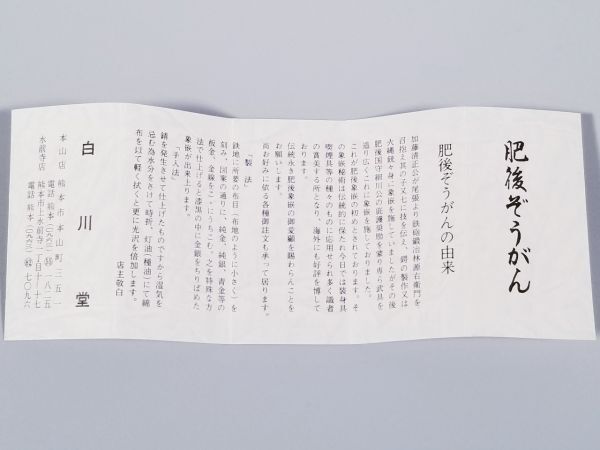 肥後ぞうがん
肥後ぞうがんの由来
加藤清正公が尾張より鉄砲鍛冶林源右衛門を
召抱え其の子又七に技を伝え、鍔の製作又は
火縄銃々身に象嵌を施していましたがその後
肥後国守細川公の庇護奨励を蒙り専ら武具を
造り広くこれに象嵌を施しておりました。
これが肥後象嵌の初めとされております。そ
の象嵌秘術は伝統的に保たれ今日では装身具
喫煙具等の種々のものに応用せられ多く識者
の賞美する所となり、海外にも好評を博して
おります。
伝統永き肥後象嵌の御愛顧を賜わらんことを
お願いします。
尚お好みに依る各種御註文も承って居ります。
「製法」
鉄地に所要の布目(布地のように小さく)を
刻み、図案の通りに、純金、純銀、青金等の
板金、金線等を
法で仕上げると漆黒の中に金銀をちりばめた
象嵌が出来上ります。
「手入法」
錆を発生させて仕上げたものですから湿気を
忌む為水分をさけて時折、灯油(種油)にて綿
布を以て軽く拭くと更に光沢を倍加します。
店主敬白
白川堂
本山店 熊本市本山町三五一
電話 熊本(〇九六三)
水前寺店 熊本市水前寺
電話 熊本(〇九六三)